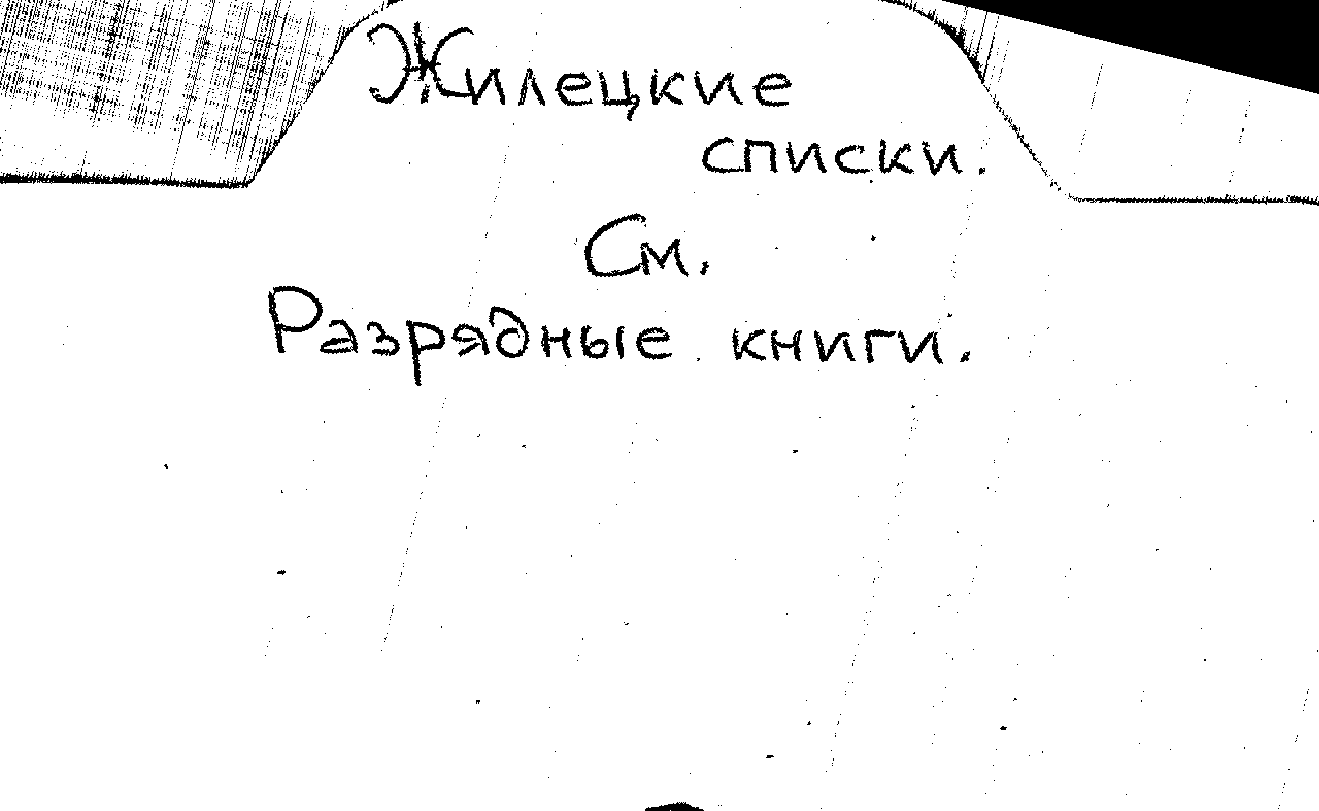 Жилецкие
списки.
См.
Разрядные книги.